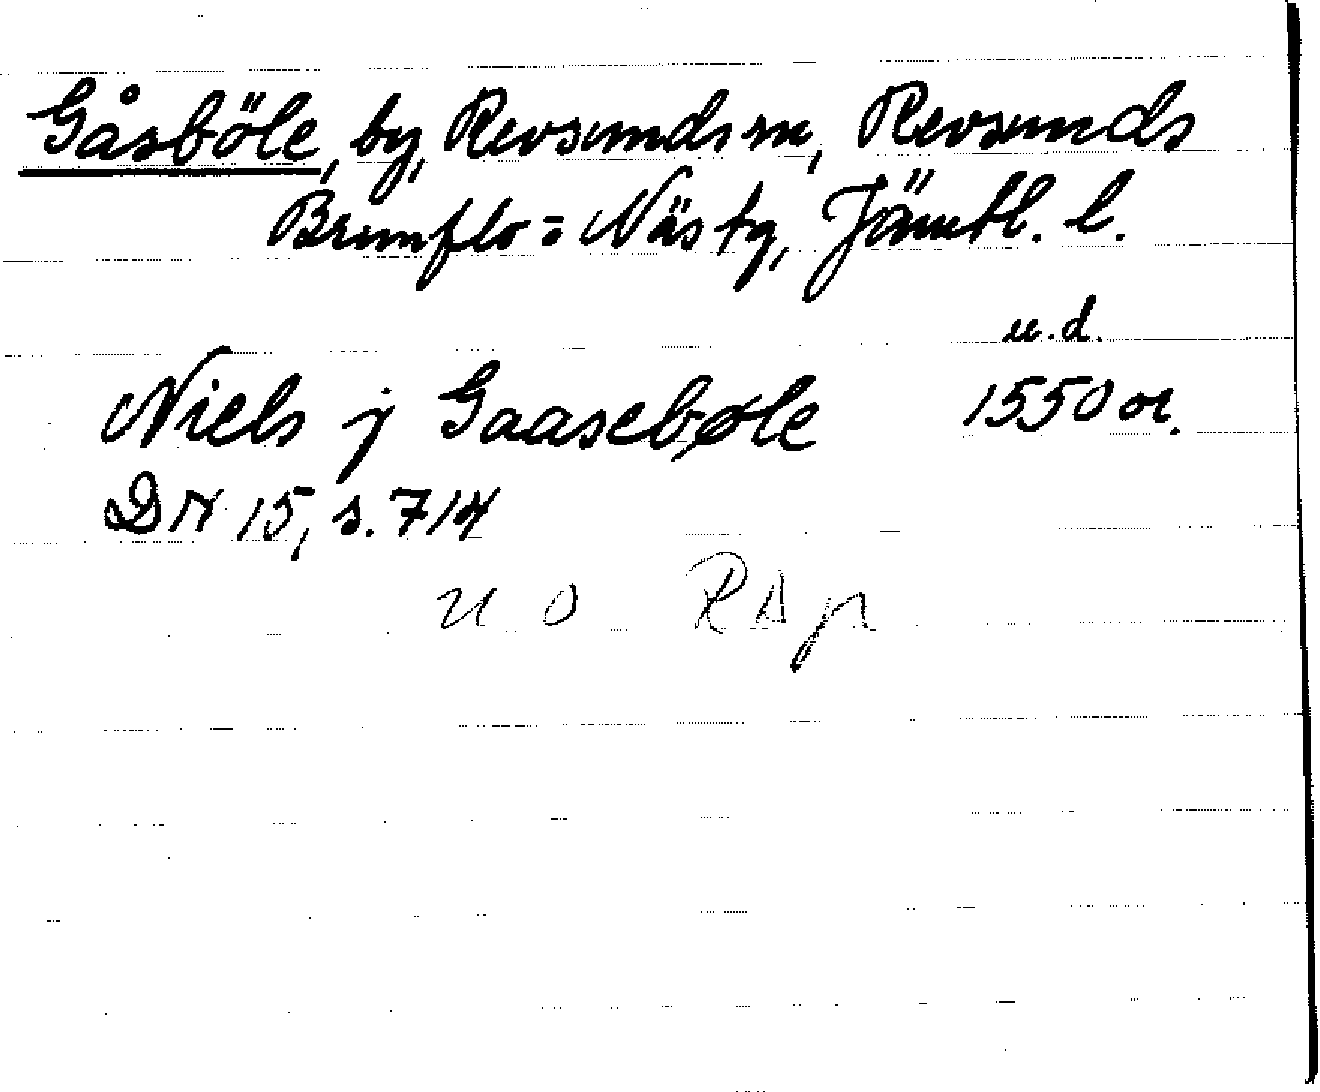 Gåsböle, by, Revsunds sn, Revsunds
Brunflo = Näs tg, Jämtl. l.
u.d.
Niels j Gaasebøle 1550 or.
DN 15, s. 714
u o RAp